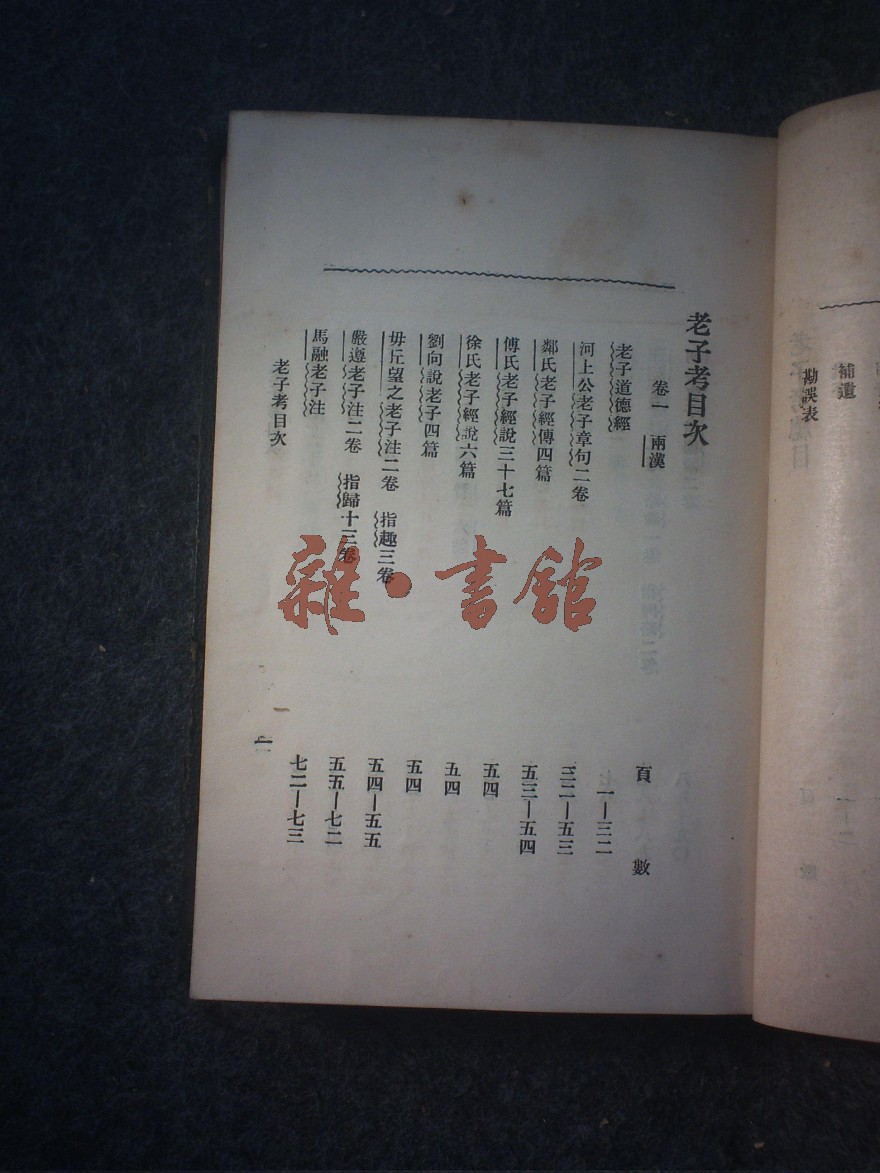 補遺
勘誤表
老子考目次
卷一 兩漢 頁數
老子道德經 一—三二
河上公老子章句二卷 三二—五三
鄰氏老子經傳四篇 五三—五四
傅氏老子經說三十七篇 五四
徐氏老子經說六篇 五四
劉向說老子四篇 五四
毋丘望之老子注二卷 指趣三卷 五四—五五
嚴遵老子注二卷 指歸十三卷 五五—七二
馬融老子注 七二—七三
老子考目次 一
雜·書館